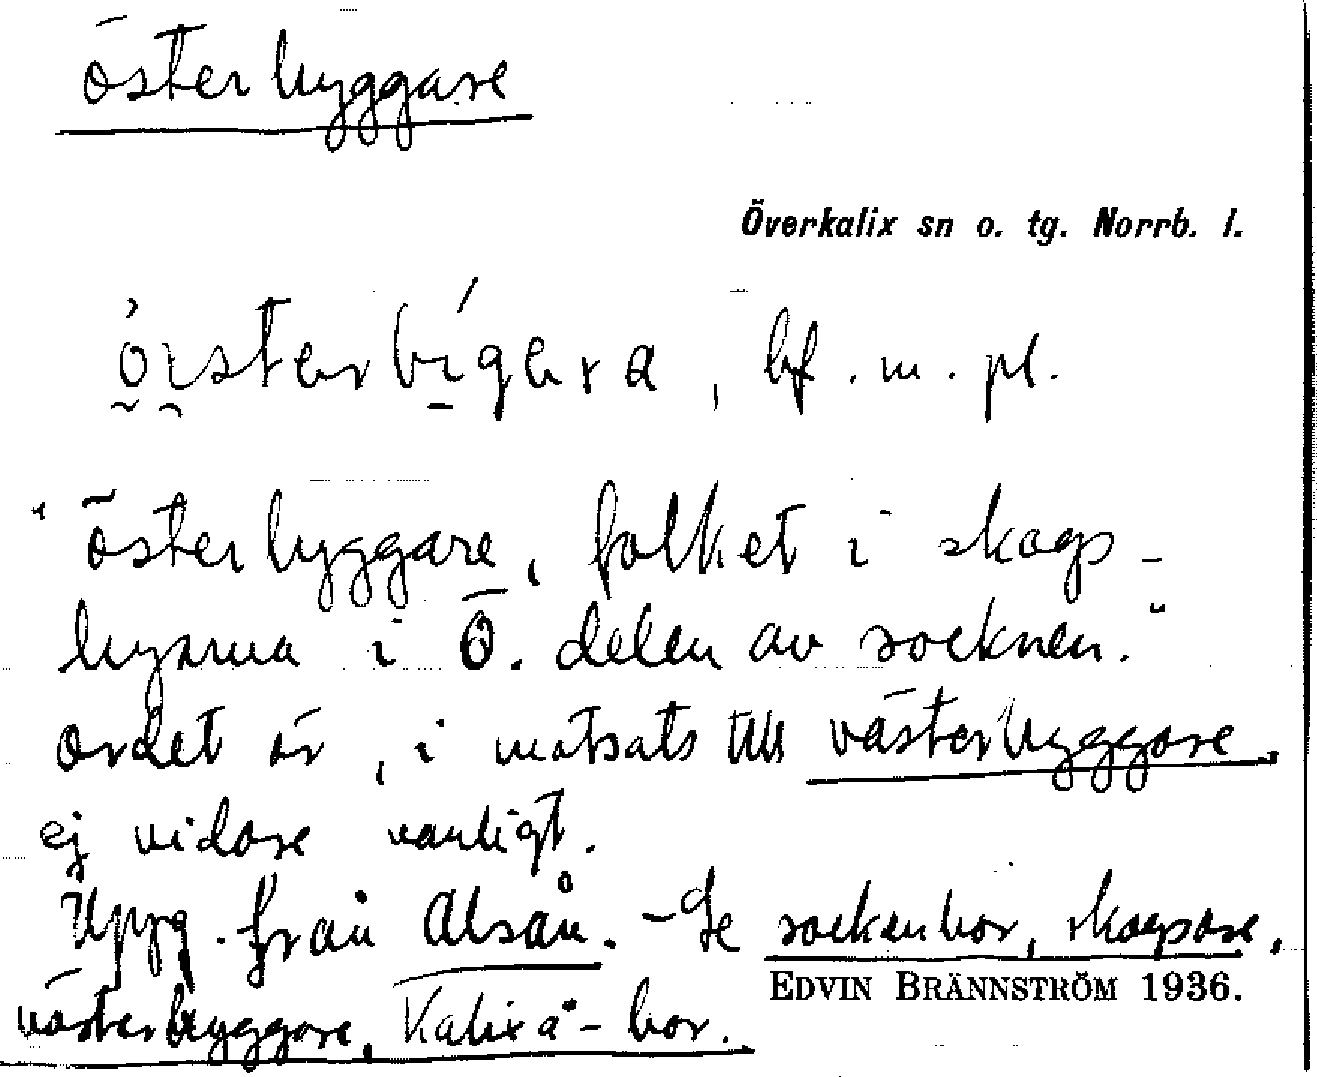 österbyggare
Överkalix sn o. tg. Norrb. l.
, bf. m. pl.
"österbyggare, folket i skogs-
byarna i Ö. delen av socknen."
Ordet är, i motsats till västerbyggare,
ej vidare vanligt.
Uppg. från Alsån. - Se sockenbor, skogsare,
EDVIN BRÄNNSTRÖM 1936.
västerbyggare, Kalixå-bor.